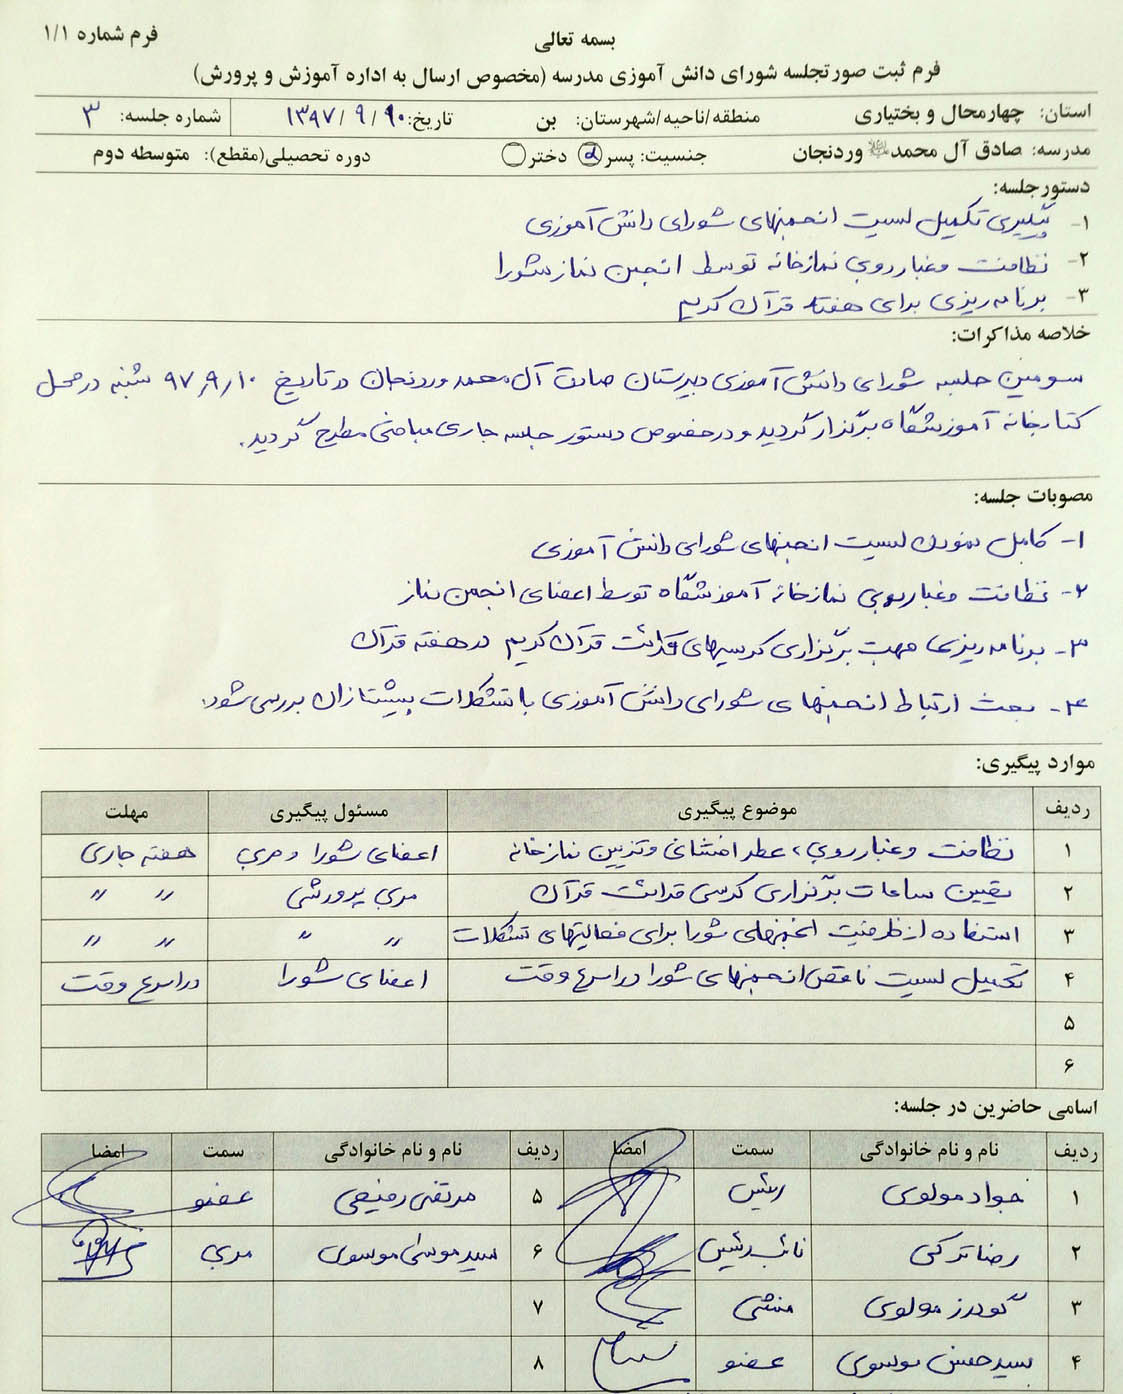 بسمه تعالی
فرم شماره ۱/۱
فرم ثبت صورتجلسه شورای دانش آموزی مدرسه (مخصوص ارسال به اداره آموزش و پرورش)
استان: چهارمحال و بختیاری منطقه/ناحیه/شهرستان: بن تاریخ: ۱۳۹۷/۹/۱۰ شماره جلسه: ۳
مدرسه: صادق آل محمد وردنجان جنسیت: پسر دختر دوره تحصیلی(مقطع): متوسطه دوم
دستورجلسه:
۱- پیگیری تکمیل لسیت انجمنهای شورای دانش آموزی
۲- نظافت و غبارروبی نمازخانه توسط انجمن نماز شورا
۳- برنامه ریزی برای هفته قرآن کریم
خلاصه مذاکرات:
سومین جلسه شورای دانش آموزی دبیرستان صادق آل محمد وردنجان در تاریخ ۹۷/۹/۱۰ شنبه در محل
کتابخانه آموزشگاه برگزار گردید و درخصوص دستور جلسه جاری مباحثی مطرح گردید.
مصوبات جلسه:
۱- کامل نمودن لسیت انجمنهای شورای دانش آموزی
۲- نظافت و غبارروبی نمازخانه آموزشگاه توسط اعضای انجمن نماز
۳- برنامه ریزی جهت برگزاری کرسیهای قرائت قرآن کریم در هفته قرآن
۴- بحث ارتباط انجمنهای شورای دانش آموزی با تشکلات پیشتازان بررسی شود.
موارد پیگیری:
ردیف موضوع پیگیری مسئول پیگیری مهلت
۱ نظافت و غبارروبی، عطر افشانی و تزیین نمازخانه اعضای شورا و مربی هفته جاری
۲ تعیین ساعات برگزاری کرسی قرائت قرآن مربی پرورشی " "
۳ استفاده از ظرفیت انجمنهای شورا برای فعالیتهای تشکلات " " " "
۴ تکمیل لسیت ناقص انجمنهای شورا در اسرع وقت اعضای شورا در اسرع وقت
۵
۶
اسامی حاضرین در جلسه:
ردیف نام و نام خانوادگی سمت امضا ردیف نام و نام خانوادگی سمت امضا
۱ جواد مولوی رییس ۵ مرتضی رفیعی عضو
۲ رضا ترکی نائب رئیس ۶ سید موسی موسوی مربی
۳ گودرز مولوی منشی ۷
۴ سید حسن موسوی عضو ۸